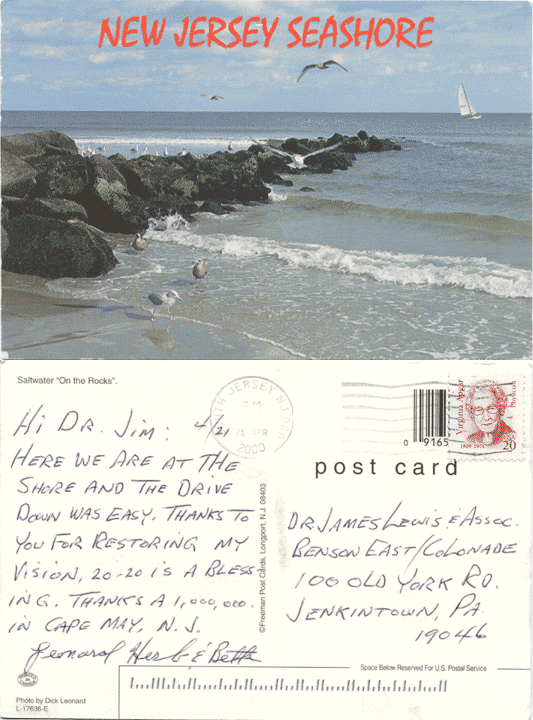 NEW JERSEY SEASHORE
Saltwater "On the Rocks".
Hi DR. JIM: 4/21
HERE WE ARE AT THE
SHORE AND THE DRIVE
DOWN WAS EASY. THANKS TO
YOU FOR RESTORING MY
VISION, 20-20 IS A BLESS
ING. THANKS A 1,000,000.
IN CAPE MAY, N.J.
Leonard Herb & Bette
TH JERSEY NJ 080
PM
21 APR
2000
0 9165
Virginia Apgar
Physician
1909-1974
USA
20
post card
DR JAMES LEWIS & ASSOC.
BENSON EAST/COLONADE
100 OLD YORK RD.
JENKINTOWN, PA.
19046
©Freeman Post Cards, Longport, N.J. 08403
Space Below Reserved For U.S. Postal Service
Photo by Dick Leonard
L-17636-E